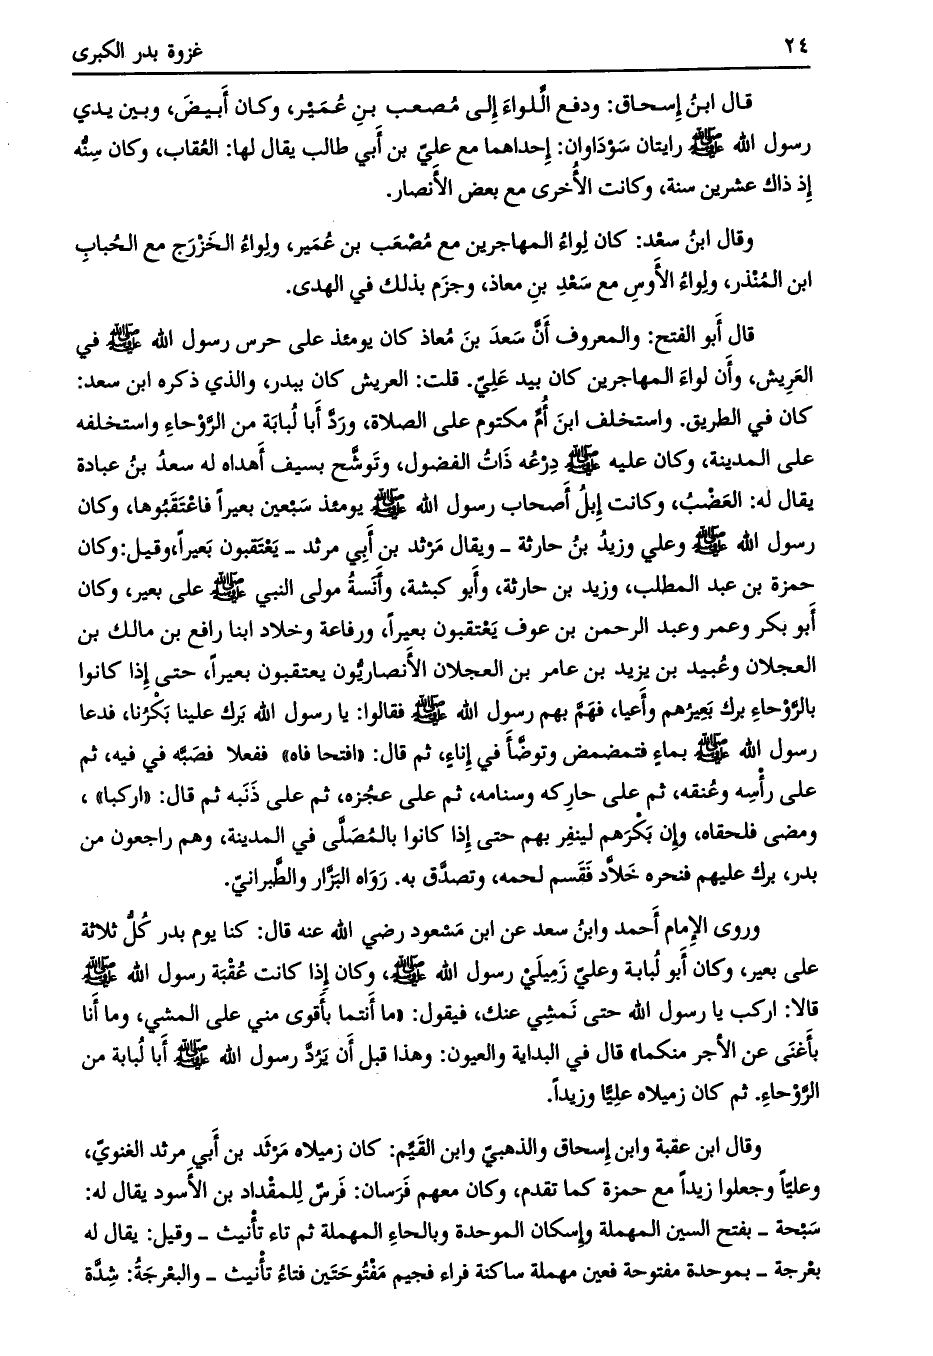 ٢٤
غزوة بدر الكبرى
قال ابنُ إسحاق: ودفع الَّلواءَ إلى مُصعب بنِ عُمَيْر، وكان أَبيضَ، وبين يدي
رسول الله ﷺ رايتان سَوْدَاوان: إحداهما مع عليّ بن أَبي طالب يقال لها: العُقاب، وكان سِنُّه
إذ ذاك عشرين سنة، وكانت الأُخرى مع بعض الأَنصار.
وقال ابنُ سعْد: كان لِواءُ المهاجرين مع مُصْعَب بن عُمَير، ولِواءُ الخَزْرَج مع الحُبابِ
ابن المُنْذر، ولِواءُ الأَوسِ مع سَعْدِ بنِ معاذ، وجزَم بذلك في الهدى.
قال أَبو الفتح: والمعروف أَنَّ سَعدَ بنَ مُعاذ كان يومئذ على حرس رسول الله ﷺ في
العَرِيش، وأَن لواءَ المهاجرين كان بيد عَلِيّ. قلت: العريش كان ببدر، والذي ذكره ابن سعد:
كان في الطريق. واستخلف ابنَ أُمِّ مكتوم على الصلاة، ورَدَّ أَبا لُبابَة من الرَّوْحاءِ واستخلفه
على المدينة، وكان عليه ﷺ دِرْعُه ذَاتُ الفضول، وتَوشَّح بسيف أَهداه له سعدُ بنُ عبادة
يقال له: العَضْبُ، وكانت إبلُ أَصحاب رسول الله ﷺ يومئذ سَبْعين بعيراً فاعْتَقَبُوها، وكان
رسول الله ﷺ وعلي وزيدُ بنُ حارثة ـ ويقال مَرْثد بن أَبِي مرثد ـ يَعْتَقبون بَعيراً،وقيل:وكان
حمزة بن عبد المطلب، وزيد بن حارثة، وأَبو كبشة، وأَنَسةُ مولى النبي ﷺ على بعير، وكان
أَبو بكر وعمر وعبد الرحمن بن عوف يَعْتقبون بعيراً، ورفاعة وخلاد ابنا رافع بن مالك بن
العجلان وعُبيد بن يزيد بن عامر بن العجلان الأَنصاريُّون يعتقبون بعيراً، حتى إذا كانوا
بالرَّوْحاءِ برك بَعِيرُهم وأَعيا، فهَمَّ بهم رسول الله ﷺ فقالوا: يا رسول الله بَرك علينا بَكْرُنا، فدعا
رسول الله ﷺ بماءٍ فتمضمض وتوضَّأَ في إناءٍ، ثم قال: «افتحا فاه» ففعلا فصَبَّه في فيه، ثم
على رأْسِه وعُنقه، ثم على حارِكه وسنامه، ثم على عجُزه، ثم على ذَنَبه ثم قال: «اركبا» ،
ومضى فلحقاه، وإن بَكْرَهم لينفِر بهم حتى إذا كانوا بالمُصَلَّى في المدينة، وهم راجعون من
بدر، برك عليهم فنحره خَلاَّد فَقَسم لحمه، وتصدَّق به. رَوَاه البَزَّار والطَّبرانيّ.
وروى الإمام أَحمد وابنُ سعد عن ابن مَسْعود رضي الله عنه قال: كنا يوم بدر كُلُّ ثلاثة
على بعير، وكان أَبو لُبابة وعليّ زَمِيلَيْ رسول الله ﷺ، وكان إذا كانت عُقْبَة رسول الله ﷺ
قالا: اركب يا رسول الله حتى نَمشِي عنك، فيقول: «ما أَنتما بأَقوى مني على المشي، وما أَنا
بأَغنَى عن الأَجر منكما» قال في البداية والعيون: وهذا قبل أَن يَرُدَّ رسول الله ﷺ أَبا لُبابة من
الرَّوْحاءِ. ثم كان زميلاه علِيًّا وزيداً.
وقال ابن عقبة وابن إسحاق والذهبيّ وابن القَيِّم: كان زميلاه مَرْثَد بن أَبي مرثد الغنويّ،
وعليّاً وجعلوا زيداً مع حمزة كما تقدم، وكان معهم فَرَسان: فَرَسٌ لِلمقْداد بن الأَسود يقال له:
سَبْحة ـ بفتح السين المهملة وإسكان الموحدة وبالحاءِ المهملة ثم تاء تأْنيث ـ وقيل: يقال له
بعْرجة ـ بموحدة مفتوحة فعين مهملة ساكنة فراء فجيم مَفْتُوحَتَين فتاءُ تأْنيث ـ والبعْرجَةُ: شِدَّة